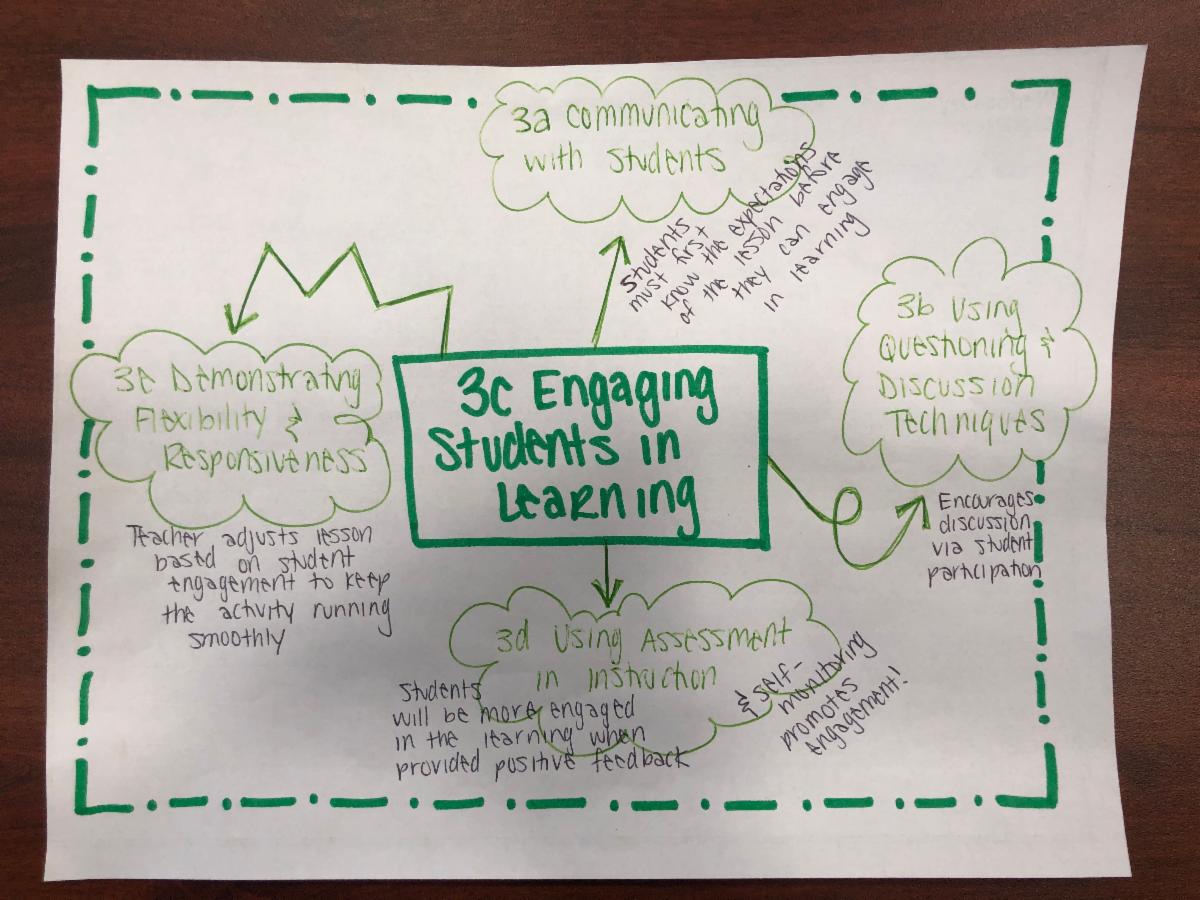 3a Communicating
with Students
Students
must first
know the expectations
of the lesson before
they can engage
in learning
3b Using
Questioning &
Discussion
Techniques
Encourages
discussion
via student
participation
3c Engaging
Students in
Learning
3e Demonstrating
Flexibility &
Responsiveness
Teacher adjusts lesson
based on student
engagement to keep
the activity running
smoothly
3d Using Assessment
in Instruction
Students
will be more engaged
in the learning when
provided positive feedback
& self-
monitoring
promotes
engagement!